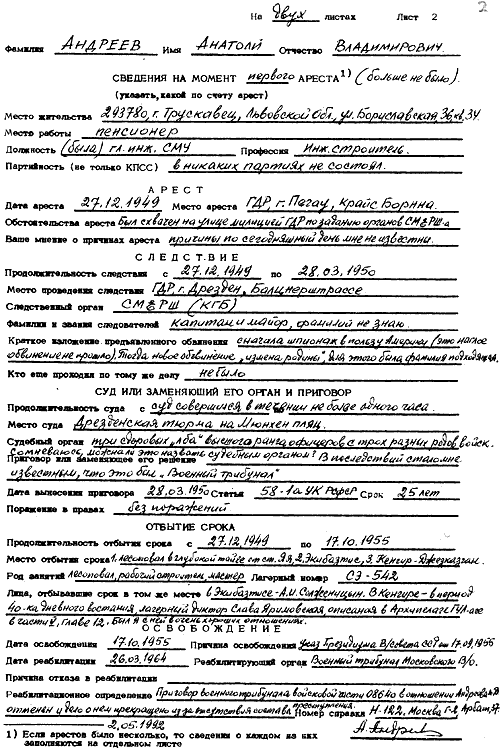 2
На двух листах Лист 2
Фамилия АНДРЕЕВ Имя АНАТОЛИ Отчество ВЛАДИМИРОВИЧ.
СВЕДЕНИЯ НА МОМЕНТ первого АРЕСТА1) (больше не было).
(указать, какой по счету арест)
Место жительства 293780, г. Трускавец, Львовской Обл, ул. Бориславская, 36, кв. 34
Место работы пенсионер
Должность (была) гл. инж. СМУ Профессия Инж. строитель.
Партийность (не только КПСС) в никаких партиях не состоял.
АРЕСТ
Дата ареста 27.12.1949 Место ареста ГДР, г. Пегау, Крайс Борнна.
Обстоятельства ареста Был схвачен на улице милицией ГДР по заданию органов СМЕРШ-а
Ваше мнение о причинах ареста причины по сегодняшный день мне не известни.
СЛЕДСТВИЕ
Продолжительность следствия с 27.12.1949 по 28.03.1950
Место проведения следствия ГДР, г. Дрезден, Баицнерштрассе
Следственный орган СМЕРШ (КГБ)
Фамилии и звания следователей капитан и майор, фамилий не знаю.
Краткое изложение предъявленного обвинения сначала шпионаж в пользу Америки (это наглое
обвинение не прошло). Тогда новое обвинение "измена родины" для этого была фамилия подходящая.
Кто еще проходил по тому же делу не было
СУД ИЛИ ЗАМЕНЯЮЩИЙ ЕГО ОРГАН И ПРИГОВОР
Продолжительность суда с суд совершился в течении не более одного часа.
Место суда Дрезденская тюрма на Мюнхен пляц.
Судебный орган три здоровых "лба" высшого ранга офицеров с трох разных родов войск.
Сомневаюс, можна ли это назвать судебным органом? В последствий стало мне
Приговор или заменяющее его решение
известным, что это был "Военный трибунал"
Дата вынесения приговора 28.03.1950 Статья 58-1а УК РСФСР Срок 25 лет
Поражение в правах без поражений
ОТБЫТИЕ СРОКА
Продолжительность отбытия срока с 27.12.1949 по 17.10.1955
Место отбытия срока 1. лесоповал в глубокой тайге от ст. Яя, 2. Экибазтус, 3. Кенгир-Джезказган.
Род занятий лесоповал, рабочий строитель, мастер Лагерный номер СЭ-542
Лица, отбывавшие срок в том же месте в Экибазтусе - А.И. Солженицын. В Кенгире - в период
40-ка дневного востания, лагерный диктор Слава Яримовская, описаная в Архипелаге ГУЛ-аге
в части V, главе 12. Был я с ней в очень хороших отношениях.
ОСВОБОЖДЕНИЕ
Дата освобождения 17.10.1955 Причина освобождения Указ Президиума В/совета СССР от 17.09.1955
Дата реабилитации 26.03.1964 Реабилитирующий орган Военный трибунал Московского В/О.
Причина отказа в реабилитации
Реабилитационное определение Приговор военного трибунала войсковой части 08640 в отношении Андреева А.В.
отменен и дело о нем прекращено из за отсутствия состава преступления. Номер справки Н-182, Москва Г-2, Арбат, 37.
2.05.1992 А. Андреев
1) Если арестов было несколько, то сведения о каждом из них
заполняются на отдельном листе